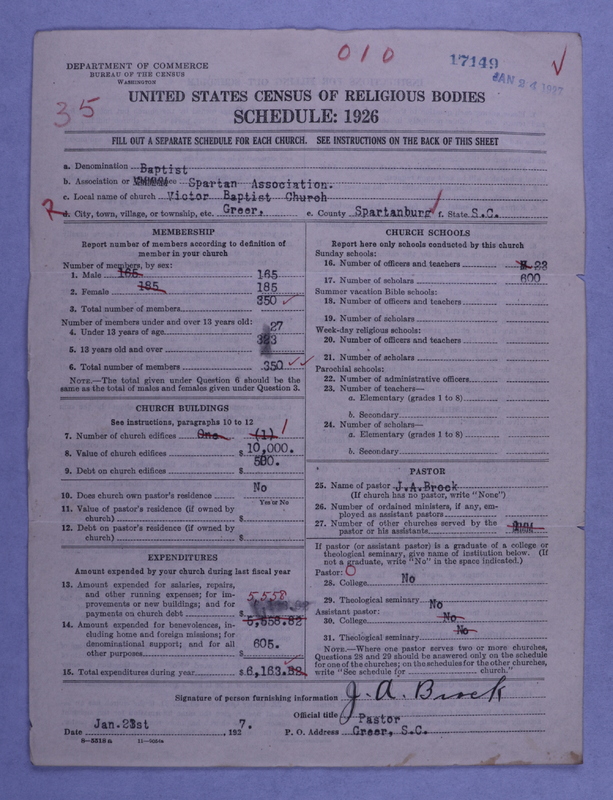 010
17149
JAN 24 1927
35
DEPARTMENT OF COMMERCE
BUREAU OF THE CENSUS
WASHINGTON
UNITED STATES CENSUS OF RELIGIOUS BODIES
SCHEDULE: 1926
FILL OUT A SEPARATE SCHEDULE FOR EACH CHURCH. SEE INSTRUCTIONS ON THE BACK OF THIS SHEET
a. Denomination Baptist
b. Association or Spartan Association.
c. Local name of church Victor Baptist Church
d. City, town, village, or township, etc. Greer, e. County Spartanburg f. State S.C.
MEMBERSHIP
Report number of members according to definition of
member in your church
Number of members, by sex:
1. Male 165 165
2. Female 185 185
3. Total number of members 350
Number of members under and over 13 years old:
4. Under 13 years of age 27
5. 13 years old and over 323
6. Total number of members 350
NOTE.—The total given under Question 6 should be the
same as the total of males and females given under Question 3.
CHURCH BUILDINGS
See instructions, paragraphs 10 to 12
7. Number of church edifices One (1) 1
8. Value of church edifices $ 10,000.
9. Debt on church edifices $ 500.
10. Does church own pastor's residence No
Yes or No
11. Value of pastor's residence (if owned by
church) $
12. Debt on pastor's residence (if owned by
church) $
EXPENDITURES
Amount expended by your church during last fiscal year
13. Amount expended for salaries, repairs,
and other running expenses; for im-
provements or new buildings; and for
payments on church debt $ 5,558
5,558.82
14. Amount expended for benevolences, in-
cluding home and foreign missions; for
denominational support; and for all
other purposes $ 605.
15. Total expenditures during year $ 6,163.82
CHURCH SCHOOLS
Report here only schools conducted by this church
Sunday schools:
16. Number of officers and teachers 23
17. Number of scholars 600
Summer vacation Bible schools:
18. Number of officers and teachers
19. Number of scholars
Week-day religious schools:
20. Number of officers and teachers
21. Number of scholars
Parochial schools:
22. Number of administrative officers
23. Number of teachers—
a. Elementary (grades 1 to 8)
b. Secondary
24. Number of scholars—
a. Elementary (grades 1 to 8)
b. Secondary
PASTOR
25. Name of pastor J.A.Brock
(If church has no pastor, write "None")
26. Number of ordained ministers, if any, em-
ployed as assistant pastors
27. Number of other churches served by the
pastor or his assistants
If pastor (or assistant pastor) is a graduate of a college or
theological seminary, give name of institution below. (If
not a graduate, write "No" in the space indicated.)
Pastor: O
28. College No
29. Theological seminary No
Assistant pastor:
30. College No
31. Theological seminary No
NOTE.—Where one pastor serves two or more churches,
Questions 28 and 29 should be answered only on the schedule
for one of the churches; on the schedules for the other churches,
write "See schedule for church."
Signature of person furnishing information J. A. Brock
Official title Pastor
Date Jan.21st, 1927. P. O. Address Greer, S.C.
8-5518a